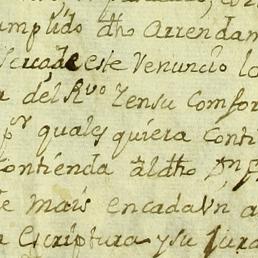 umplido dho Arrendam
este Venuncio lo
a del R.vo Zensu Comfor
p.r quales quiera Conti
Contienda al dho
e mais encada Vn a
a escriptura y su Jura